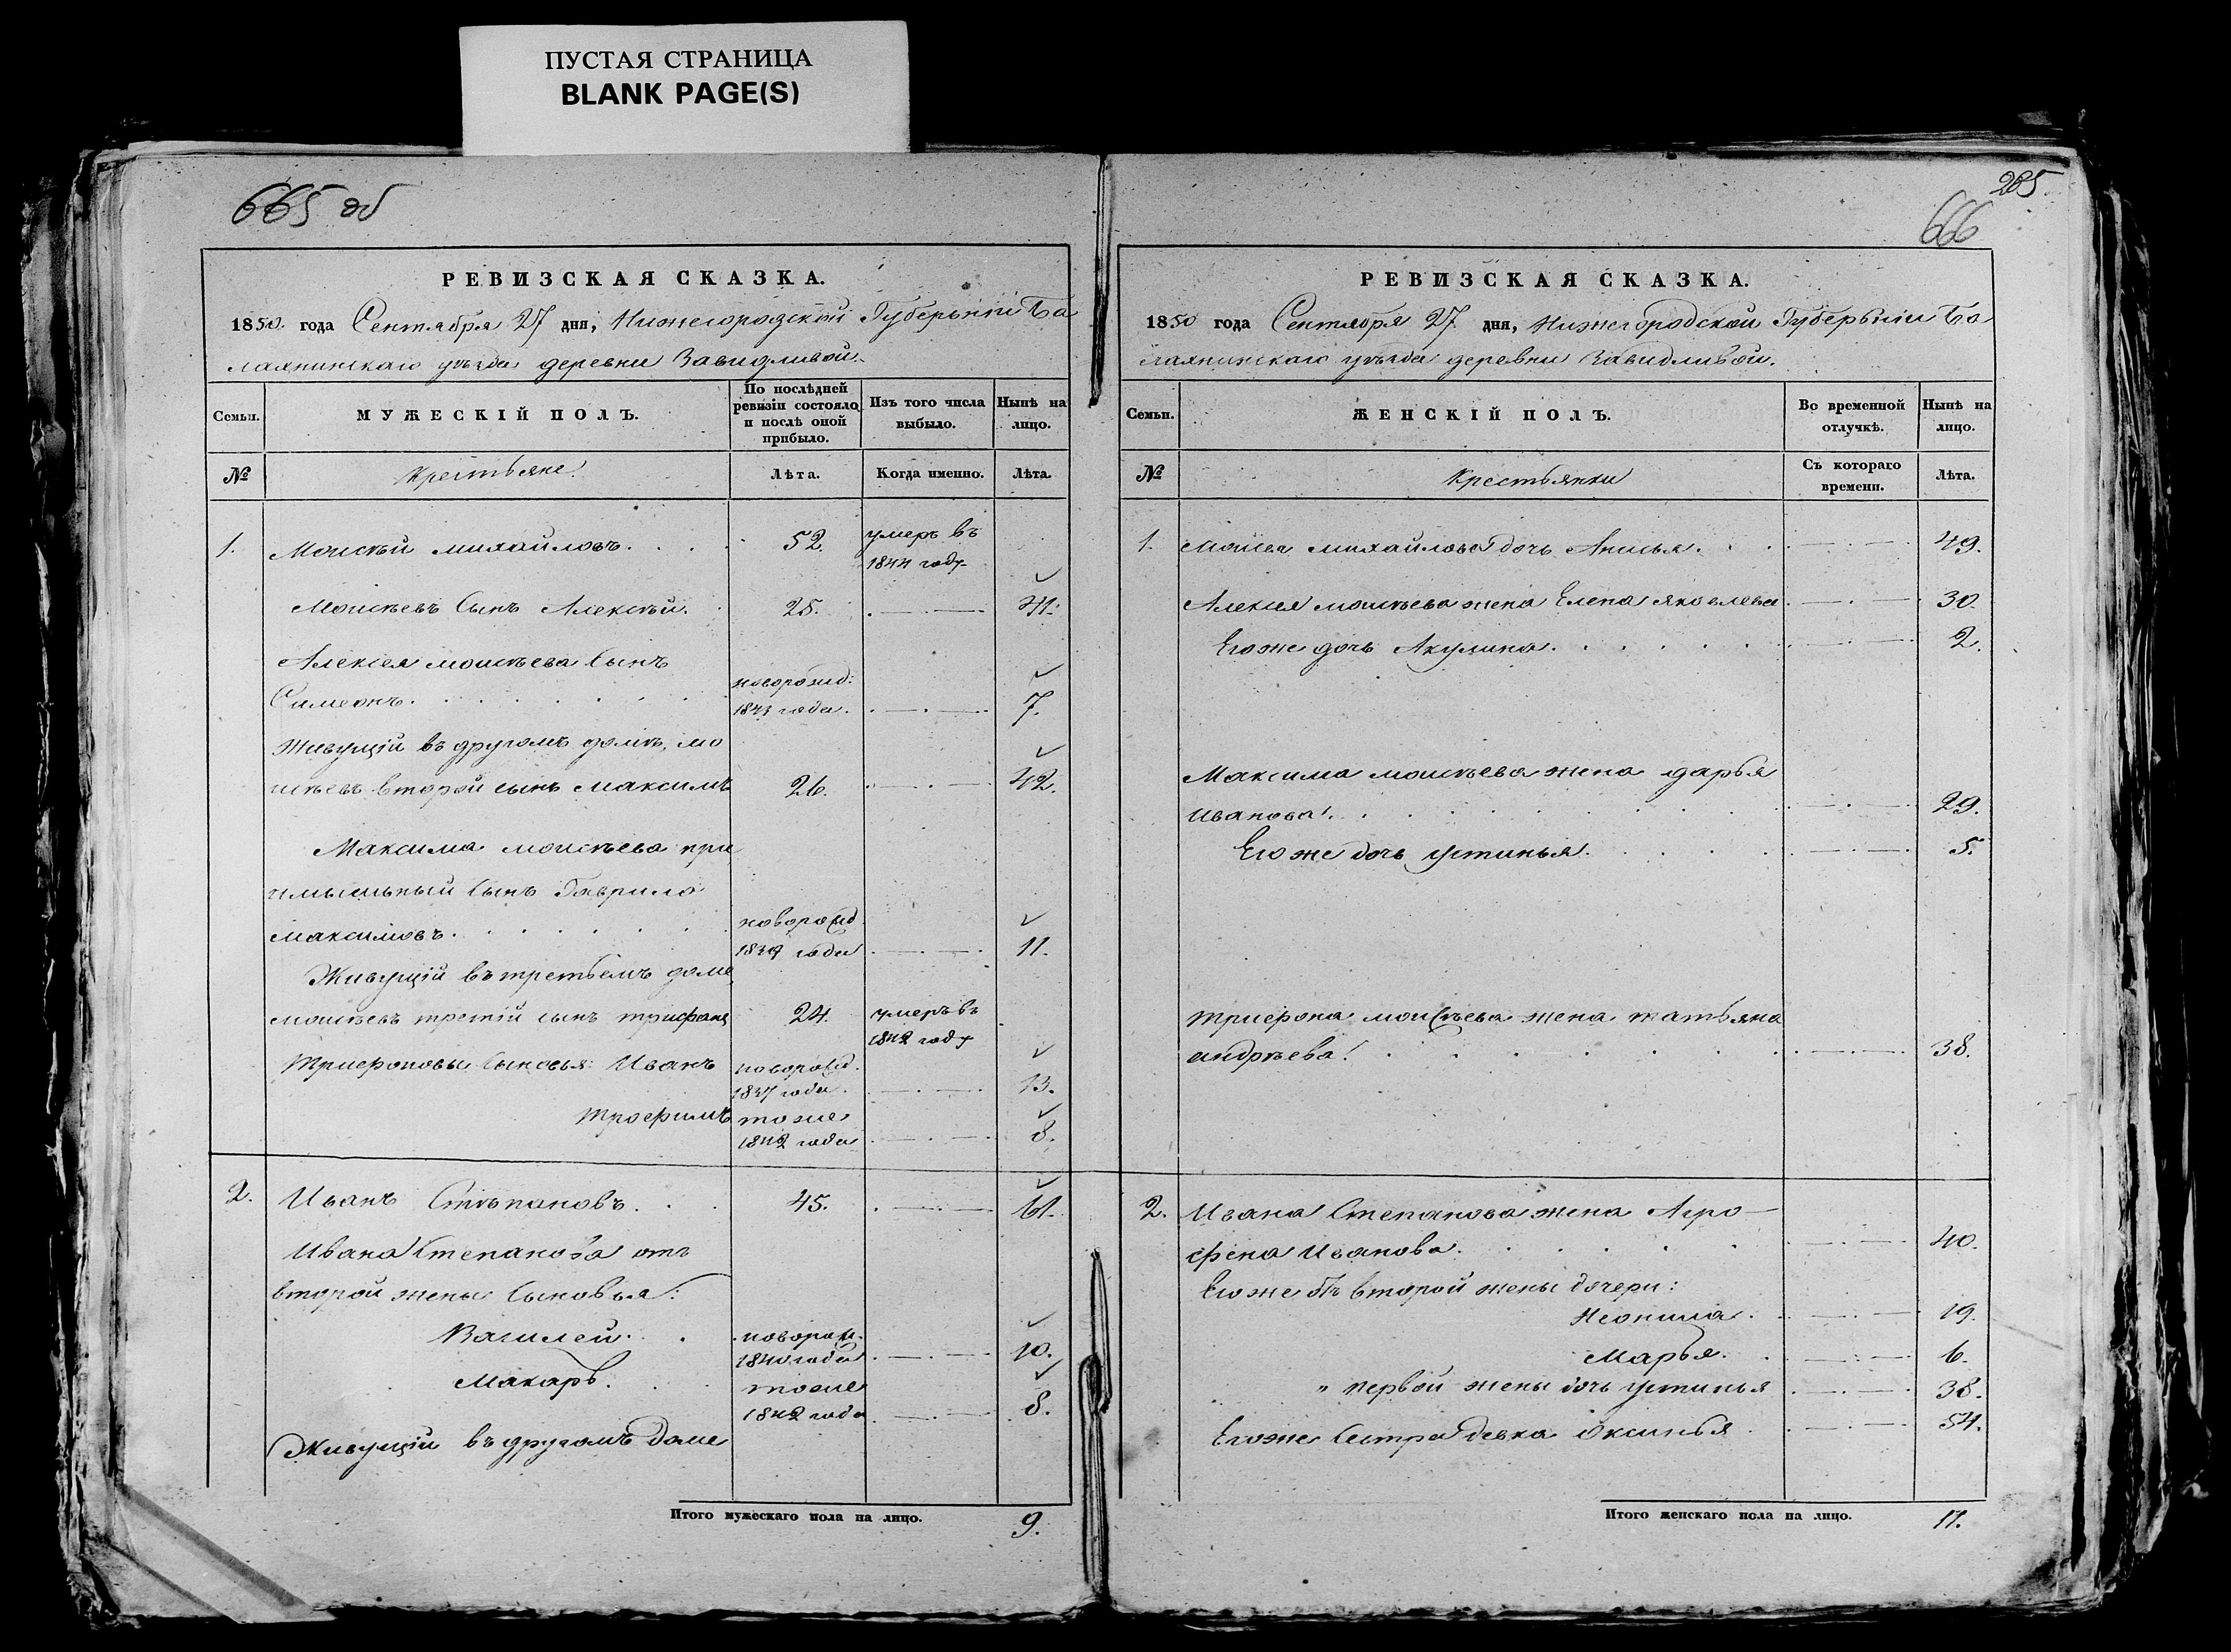 ПУСТАЯ СТРАНИЦА
BLANK PAGE(S)
665 об
РЕВИЗСКАЯ СКАЗКА.
1850 года Сентября 27 дня, Нижегородской Губерьніи Ба
лахнинскаго уѣзда деревни Завидливой.
Семьи.
МУЖЕСКІЙ ПОЛЪ.
По послѣдней
ревизіи состояло
и послѣ оной
прибыло.
Изъ того числа
выбыло.
Нынѣ на
лицо.
№ Крестьяне Лѣта. Когда именно. Лѣта.
1. Моисѣй михайловъ. 52. умеръ въ
1844 году
Моисѣевъ Сынъ Алексѣй. 25. 41.
Алексея моисѣева Сынъ
Симеонъ. новорожд: 1843 года. 7.
Живущій въ другомъ домѣ, мо
исѣевъ второй сынъ Максимъ 26. 42.
Максима моисѣева при
имышьный Сынъ Гаврило
Максимовъ. новорожд. 1839 года 11.
Живущій въ третьемъ доме
моисѣевъ третій сынъ трифанъ 24. умеръ въ
1842 году
Трифоновы Сыновья: Иванъ новорожд. 1837 года. 13.
Трофимъ тоже 1842 года 8.
2. Иванъ Стѣпановъ. 45. 61.
Ивана Степанова отъ
второй жены Сыновья:
Василей. новорож. 1840 года 10.
Макаръ. тоже 1842 года 8.
Живущій въ другомъ доме
Итого мужескаго пола на лицо. 9.
285
666
РЕВИЗСКАЯ СКАЗКА.
1850 года Сентября 27 дня, Нижегородской Губерьніи Ба
лахнинскаго уѣзда деревни Завидливой.
Семьи.
ЖЕНСКІЙ ПОЛЪ.
Во временной
отлучкѣ.
Нынѣ на
лицо.
№ Крестьянки
Съ котораго
времени.
Лѣта.
1. Моисея михайлова дочь Анисья. 49.
Алексея моисѣева жена Елена яковлева 30.
Егоже дочь Акулина. 2.
Максима моисѣева жена дарья
иванова. 29.
Егоже дочь устинья. 5.
трифона моисѣева жена татьяна
андрѣева. 38.
2. Ивана Степанова жена Агро
фена Иванова. 40.
Егоже отъ второй жены дочери:
Неонила. 19.
Марья. 6.
" первой жены дочь устинья 38.
Егоже Сестра девка Оксинья 54.
Итого женскаго пола на лицо. 11.